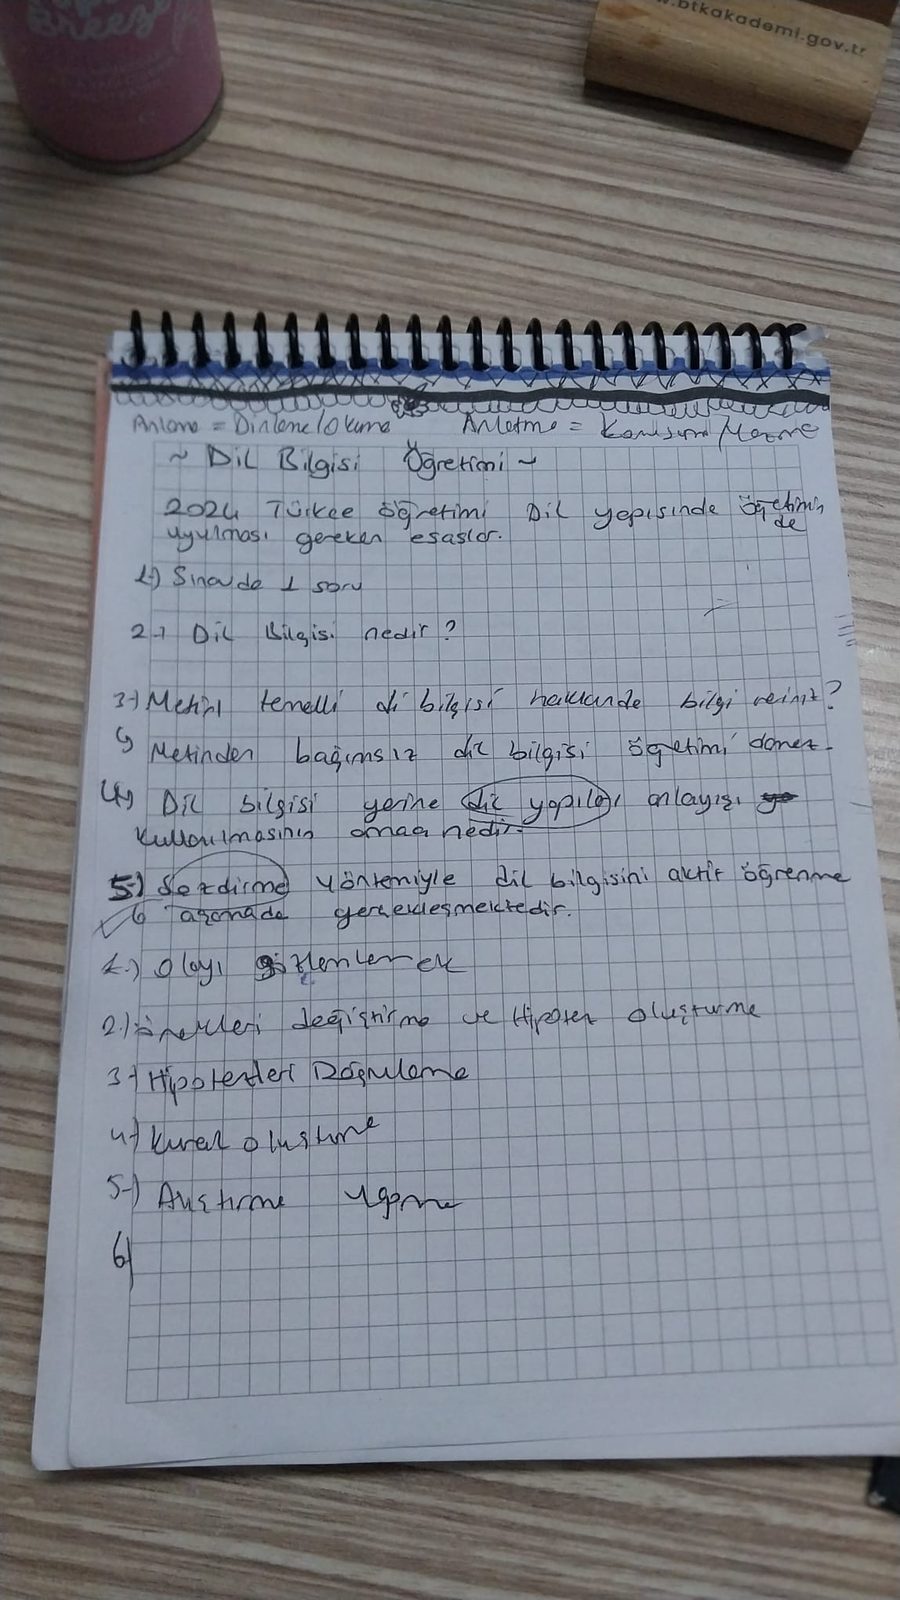 Breeze
www.btkakademi.gov.tr
Anlama = Dinleme/Okuma Anlatma = Konuşma/Yazma
~ Dil Bilgisi Öğretimi ~
2024 Türkçe öğretimi Dil yapısında öğretimin
de
uyulması gereken esaslar.
1-) Sınavda 1 soru
2-) Dil Bilgisi nedir?
3-) Metin temelli dil bilgisi hakkında bilgi veriniz?
↳ Metinden bağımsız dil bilgisi öğretimi olmaz.
4-) Dil bilgisi yerine dil yapıları anlayışı
kullanılmasının amacı nedir.
5-) Sezdirme yöntemiyle dil bilgisini aktif öğrenme
6 aşamada gerçekleşmektedir.
1-) Olayı gözlemlemek
2-) örnekleri değiştirme ve Hipotez oluşturma
3-) Hipotezleri Doğrulama
4-) Kural oluşturma
5-) Alıştırma yapma
6)